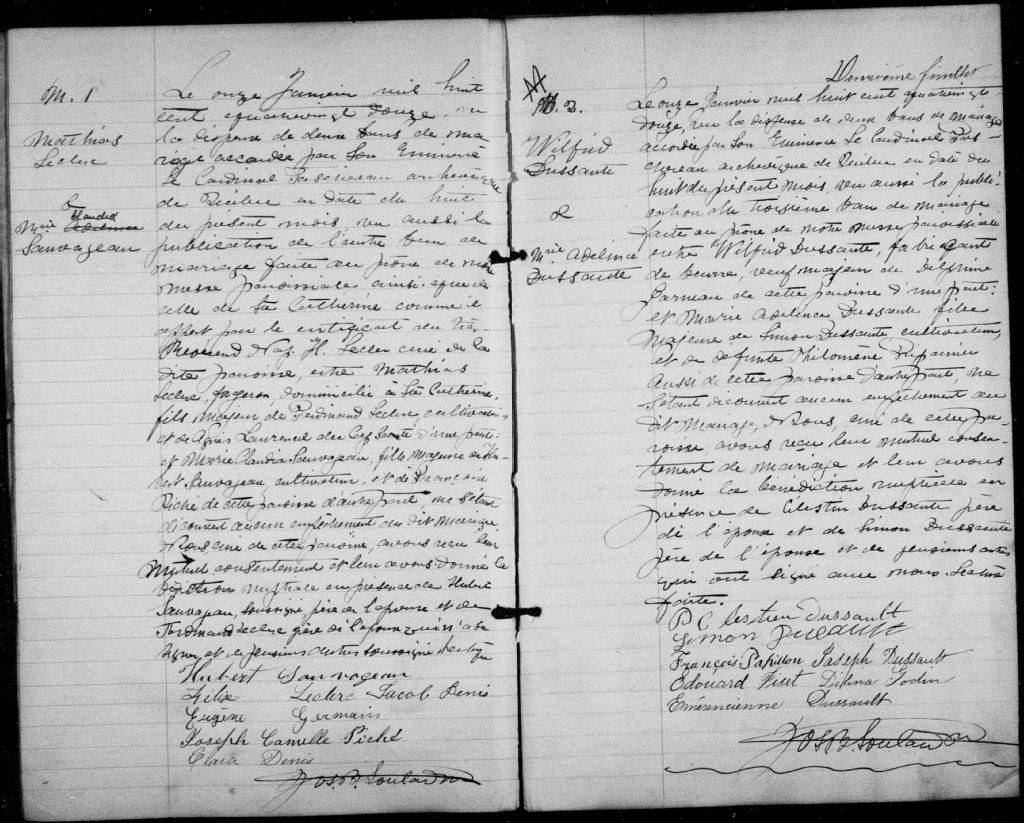 M. 1
Matthias
Leclerc
&
Claudia
Mrie
Sauvageau
Le onze Janvier mil huit
cent quatrevingt douze, vu
la dispense de deux bans de ma
riage accordée par Son Eminence
Le Cardinal Taschereau archevêque
de Québec en date du huit
du présent mois vu aussi la
publication de l'autre ban de
mariage faite au prône de notre
messe paroissiale ainsi que de
celle de Ste Catherine comme il
appert par le certificat du Très
Révérend Naz. H. Leclerc curé de la
dite paroisse, entre Matthias
Leclerc, forgeron, domicilié à Ste Catherine,
fils majeur de Ferdinand Leclerc cultivateur
et de Agnès du Cap Santé d'une part:
et Marie Claudia Sauvageau, fille majeure de Hu-
bert Sauvageau cultivateur, et de Françoise
Piché de cette paroisse d'autre part, ne s'étant
découvert aucun empêchement au dit mariage,
Nous curé de cette paroisse, avons reçu leur
mutuel consentement et leur avons donné la
bénédiction nuptiale en présence de Hubert
Sauvageau, soussigné père de l'épouse et de
Ferdinand Leclerc père de l'époux qui n'a su
signer et de plusieurs autres soussignés lecture
Hubert Sauvageau
Félix Leclerc Jacob Denis
Eugène Germain
Joseph Camille Piché
Clara Denis
Jos.
Deuxième feuillet
M. 2.
Wilfrid
Dussault
&
Mrie Adeline
Dussault
Le onze Janvier mil huit cent quatrevingt-
douze, vu la dispense de deux bans de mariage
accordée par Son Eminence Le Cardinal Tas-
chereau archevêque de Québec en date du
huit du présent mois, vu aussi la publi-
cation du troisième ban de mariage
faite au prône de notre messe paroissiale
entre Wilfrid Dussault, fabricant
de beurre, veuf majeur de Delphine
Garneau de cette paroisse d'une part:
et Marie Adeline Dussault, fille
majeure de Simon Dussault, cultivateur,
et de défunte Philomène
aussi de cette paroisse d'autre part, ne
s'étant découvert aucun empêchement au
dit mariage, Nous, curé de cette pa-
roisse, avons reçu leur mutuel consen-
tement de mariage et leur avons
donné la bénédiction nuptiale en
présence de Célestin Dussault père
de l'époux et de Simon Dussault
père de l'épouse et de plusieurs autres
qui ont signé avec nous. Lecture
faite.
Célestin Dussault
Simon Dussault
François Papillon Joseph Dussault
Edouard Délima Godin
Emérencienne Dussault
Jos.